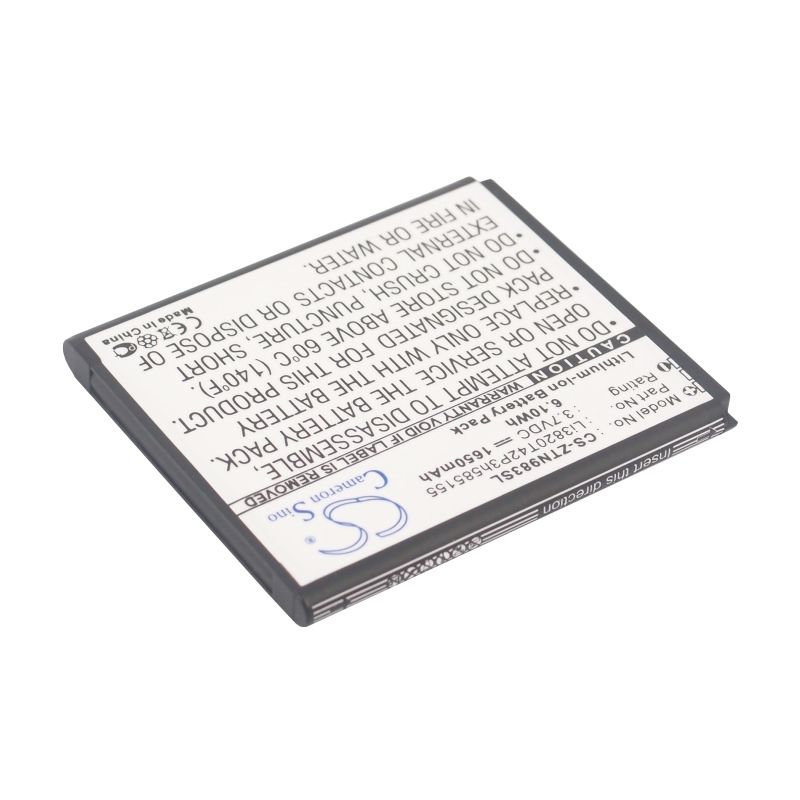 Cameron Sino
CS
®
Model No: CS-ZTN983SL
Part No: Li3820T42P3h585155
Rating: 3.7VDC ⎓ 1650mAh
6.10Wh
Lithium-ion Battery Pack
CAUTION
•DO NOT ATTEMPT TO DISASSEMBLE,
OPEN OR SERVICE THE BATTERY PACK
•REPLACE ONLY WITH THE BATTERY
PACK DESIGNATED FOR THIS PRODUCT.
•DO NOT STORE ABOVE 60°C (140°F).
•DO NOT CRUSH, PUNCTURE, SHORT
EXTERNAL CONTACTS OR DISPOSE OF
IN FIRE OR WATER.
CE
Made in China
Insert this direction